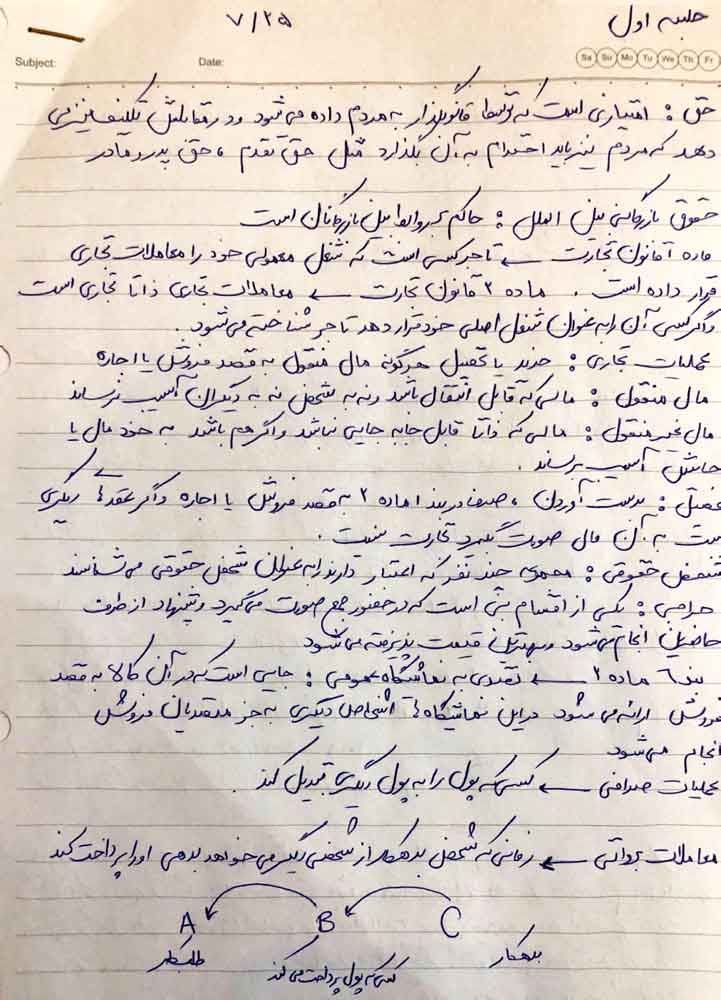 جلسه اول ۷/۲۵
Subject: Date: Sa Su Mo Tu We Th Fr
حق : امتیازی است که توسط قانونگذار به مردم داده می‌شود و در مقابلش تکلیف نیز می
دهد که مردم نیز باید احترام به آن بگذارد مثل حق تقدم ، حق پدر و مادر
حقوق بازرگانی بین الملل : حاکم بر روابط بین بازرگانان است
ماده ۱ قانون تجارت ← تاجر کسی است که شغل معمولی خود را معاملات تجاری
قرار داده است . ماده ۲ قانون تجارت ← معاملات تجاری ذاتا تجاری است
و اگر کسی آن را به عنوان شغل اصلی خود قرار دهد تاجر شناخته می‌شود .
عملیات تجاری : خرید یا تحصیل هرگونه مال منقول به قصد فروش یا اجاره
مال منقول : مالی که قابل انتقال باشد و نه به شخص نه به دیگران آسیب نرساند
مال غیر منقول : مالی که ذاتا قابل جابه جایی نباشد و اگر هم باشد به خود مال یا
محلش آسیب برساند .
تحصیل : بدست آوردن ، صرفا در بند ۱ ماده ۲ به قصد فروش یا اجاره و اگر عقدها دیگری
نسبت به آن مال صورت گیرد تجارت نیست .
شخص حقوقی : مجموعه چند نفر که اعتبار دارند را به عنوان شخص حقوقی می‌شناسند
حراجی : یکی از اقسام بیع است که در حضور جمع صورت می‌گیرد و پیشنهاد از طرف
حاضرین انجام می‌شود و بهترین قیمت پذیرفته می‌شود
بند ۶ ماده ۲ ← تصدی به نمایشگاه عمومی : جایی است که در آن کالا به قصد
فروش ارائه می شود در این نمایشگاه ها اشخاص دیگری به جز متصدیان فروش
انجام می‌شود
عملیات صرافی ← کسی که پول را به پول دیگری تبدیل کند .
معاملات برواتی ← زمانی که شخص بدهکار از شخص دیگر می‌خواهد بدهی او را پرداخت کند
A B C
طلبکار کسی که پول پرداخت می کند بدهکار